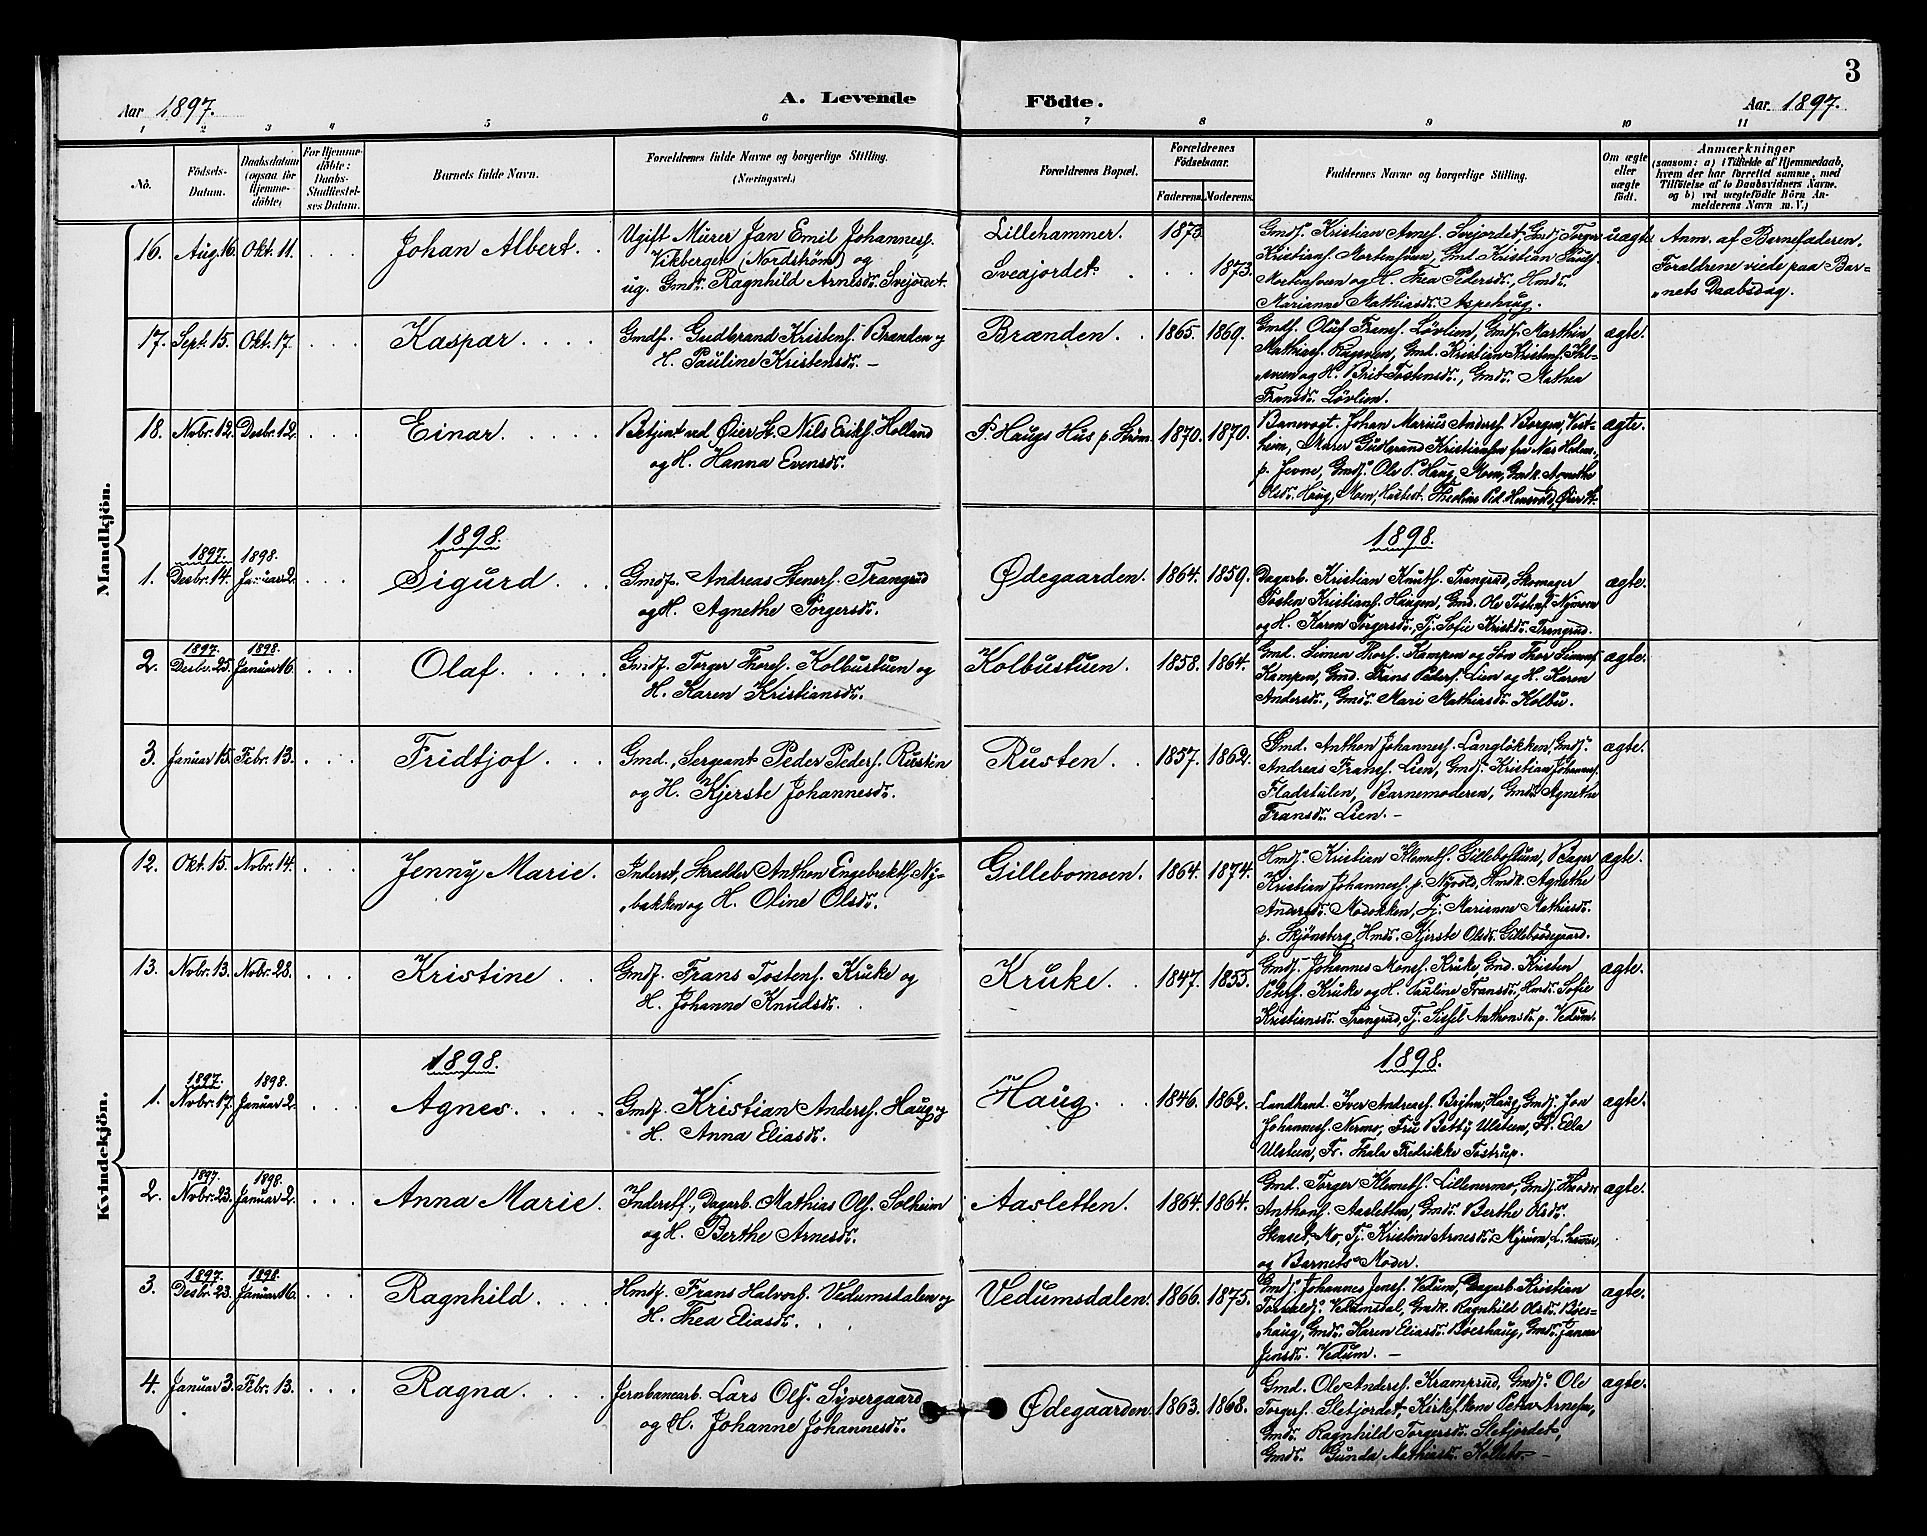 3
Aar 1897. A. Levende Födte. Aar 1897.
1 2 3 4 5 6 7 8 9 10 11
No.
Födsels-
Datum.
Daabsdatum
(ogsaa for
Hjemme-
döbte)
For Hjemme-
döbte:
Daabs-
Stadfæstel-
ses Datum.
Barnets fulde Navn.
Forældrenes fulde Navne og borgerlige Stilling.
(Næringsvei.)
Forældrenes Bopæl.
Forældrenes
Födselsaar.
Faderens. Moderens.
Faddernes Navne og borgerlige Stilling.
Om ægte
eller
uægte
født.
Anmærkninger
(saasom: a) i Tilfælde af Hjemmedaab,
hvem der har forrettet samme, med
Tilföielse af to Daabsvidners Navne.
og b) ved uægtefödte Börn An-
melderens Navn m. V.)
Mandkjön.
16. Aug. 16. Okt. 11. Johan Albert.
Ugift Murer Jan Emil Johannesf.
Vikberget (Nordstrøm) og
ug. Gmdsd. Ragnhild Arnesdr. Svejordet.
Lillehammer. 1873
Sveajordet 1873.
Gmdf. Kristian Arnesf. Svejordet, Gmdf. Torger
Kristiansf. Mortenstuen, Gmd. Kristian
Mortenstuen og H. Thea Pedersdr., Hmdsd.
Marianne Mathiasdr. Aspehaug.
uægte
Anm. af Barnefaderen.
Forældrene viede paa Bar-
„nets Daabsdag.
17. Sept. 15. Okt. 17. Kaspar.
Gmdf. Gudbrand Kristensf. Brænden og
H. Pauline Kristensdr. —
Brænden. 1865. 1869.
Gmdf. Oluf Fransf. Lövlien, Gmdf. Marthin
Mathiasf. Gmd. Kristian Kristensf.
og H. Brit Tostensdr., Gmdsd. Mathea
Fransdr. Lövlien.
ægte.
18. Nvbr. 12. Desbr. 12. Einar.
Betjent ved Øier St. Nils Eriksf. Holland
og H. Hanna Evensdr.
P. Haugs Hus p. Strøm. 1870. 1870.
Banevogt. Johan Marius Andersf. Borgen, Vest-
heim, Murer Gudbrand Kristiansen fra Næs Hedem.,
p. Jevne, Gmdf. Ole P. Haug, Moen, Gmdk. Agnethe
Olsdr. Haug, Moen, Øier St.
ægte.
1898. 1898.
1. 1897. Desbr. 14. 1898. Januar 2. Sigurd
Gmdf. Andreas Stenersf. Trangrud
og H. Agnethe Torgersdr.
Ødegaarden. 1864. 1859.
Dagarb. Kristian Knutsf. Trangrud, Skomager
Tosten Kristiansf. Haugen, Gmd. Ole Tostensf. Nymoen
og H. Karen Torgersdr., Tj. Sofie Kristdr. Trangrud.
ægte.
2. 1897. Desbr. 25. 1898. Januar 16. Olaf.
Gmdf. Torger Thoresf. Kolbustuen og
H. Karen Kristiansdr.
Kolbustuen. 1858. 1864.
Gmd. Simen Thorsf. Kampen og Søn Thor Simensf.
Kampen, Gmd. Frans Pedersf. Lien og H. Karen
Andersdr., Gmdsd. Mari Mathiasdr. Kolbu.
ægte.
3. Januar 15. Febr. 13. Fridtjof
Gmd., Sergeant Peder Pedersf. Rusten
og H. Kjerste Johannesdr.
Rusten. 1857. 1862.
Gmd. Anthon Johannesf. Langlökken, Gmdf.
Andreas Fransf. Lien, Gmdf. Kristian Johannesf.
Fladstulen, Barnemoderen, Gmdsd. Agnethe
Fransdr. Lien. —
ægte.
Kvindekjön.
12. Okt. 15. Nvbr. 14. Jenny Marie.
Inderst, Skrædder Anthon Engebrektsf. Ny-
„bakken og H. Oline Olsdr.
Gillebomoen. 1864. 1874.
Hmdf. Kristian Klemetsf. Gillebostuen, Bager
Kristian Johannesf. p. Nyvold, Hmdk. Agnethe
Andersdr. Modokken, Tj. Marianne Mathiasdr.
p. Skjønsberg, Hmdsd. Kjerste Olsdr. Gilleboödegaard.
ægte.
13. Nvbr. 13. Nvbr. 28. Kristine
Gmdf. Frans Tostensf. Kruke og
H. Johanne Knudsdr.
Kruke. 1847. 1855.
Gmdf. Johannes Monsf. Kruke, Gmd. Kristen
Petersf. Kruke og H. Pauline Fransdr., Hmdsd. Sofie
Kristiansdr. Trangrud, Tj. Sissel Anthonsdr. p. Vedum.
ægte.
1898. 1898.
1. 1897. Nvbr. 17. 1898. Januar 2. Agnes.
Gmdf. Kristian Andersf. Haug og
H. Anna Eliasdr.
Haug. 1846. 1862.
Landhand. Iver Andreasf. Bryhn, Haug, Gmdf. Jon
Johannesf. Nermo, Fru Betty Ulsteen, Fr. Ella
Ulsteen, Fr. Thala Fredrikke Tostrup.
ægte.
2. 1897. Nvbr. 23. 1898. Januar 2. Anna Marie.
Inderstf., Dagarb. Mathias Olsf. Solheim
og H. Berthe Arnesdr.
Aasletten. 1864. 1864.
Gmd. Torger Klemetsf. Lillenermo, Gmdf. Theodor
Anthonsf. Aasletten, Gmdsd. Berthe Olsdr.
Stenset, Mo, Tj. Kristine Arnesdr. Myrum, L.hammer,
og Barnets Moder.
ægte.
3. 1897. Desbr. 23. 1898. Januar 16. Ragnhild.
Hmdf. Frans Halvorsf. Vedumsdalen og
H. Thea Eliasdr.
Vedumsdalen. 1866. 1875.
Gmdf. Johannes Jensf. Vedum, Dagarb. Kristian
Vedumsdal, Gmdk. Ragnhild Olsdr. Böes-
„haug, Gmdsd. Karen Eliasdr. Böeshaug, Gmdsd.
Jensdr. Vedum. —
ægte.
4. Januar 3. Febr. 13. Ragna.
Jernbanearb. Lars Olsf. Syvergaard
og H. Johanne Johannesdr.
Ødegaarden. 1863. 1868.
Gmd. Ole Andersf. Kramprud, Gmdf. Ole
Torgersf. Sletjordet, Petra Arnesen,
Gmdsd. Ragnhild Torgersdr. Sletjordet,
Gmdsd. Gunda Mathiasdr. —
ægte.